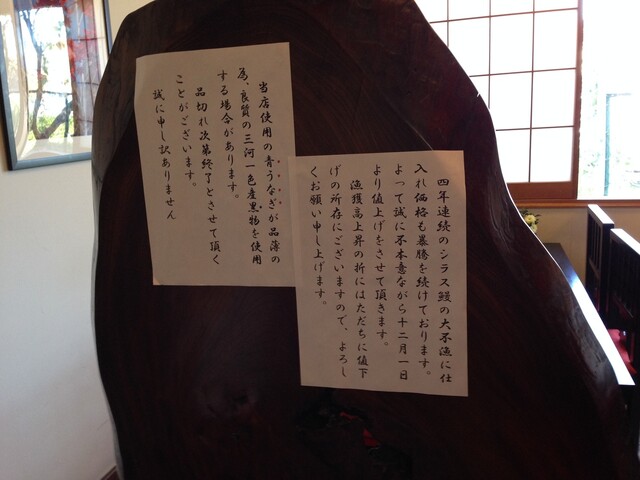 四年連続のシラス鰻の大不漁に仕
入れ価格も暴騰を続けております。
よって誠に不本意ながら十二月一日
より値上げをさせて頂きます。
漁獲高上昇の折にはただちに値下
げの所存にございますので、よろし
くお願い申し上げます。
当店使用の青うなぎが品薄の
為、良質の三河一色産黒物を使用
する場合があります。
品切れ次第終了とさせて頂く
ことがございます。
誠に申し訳ありません